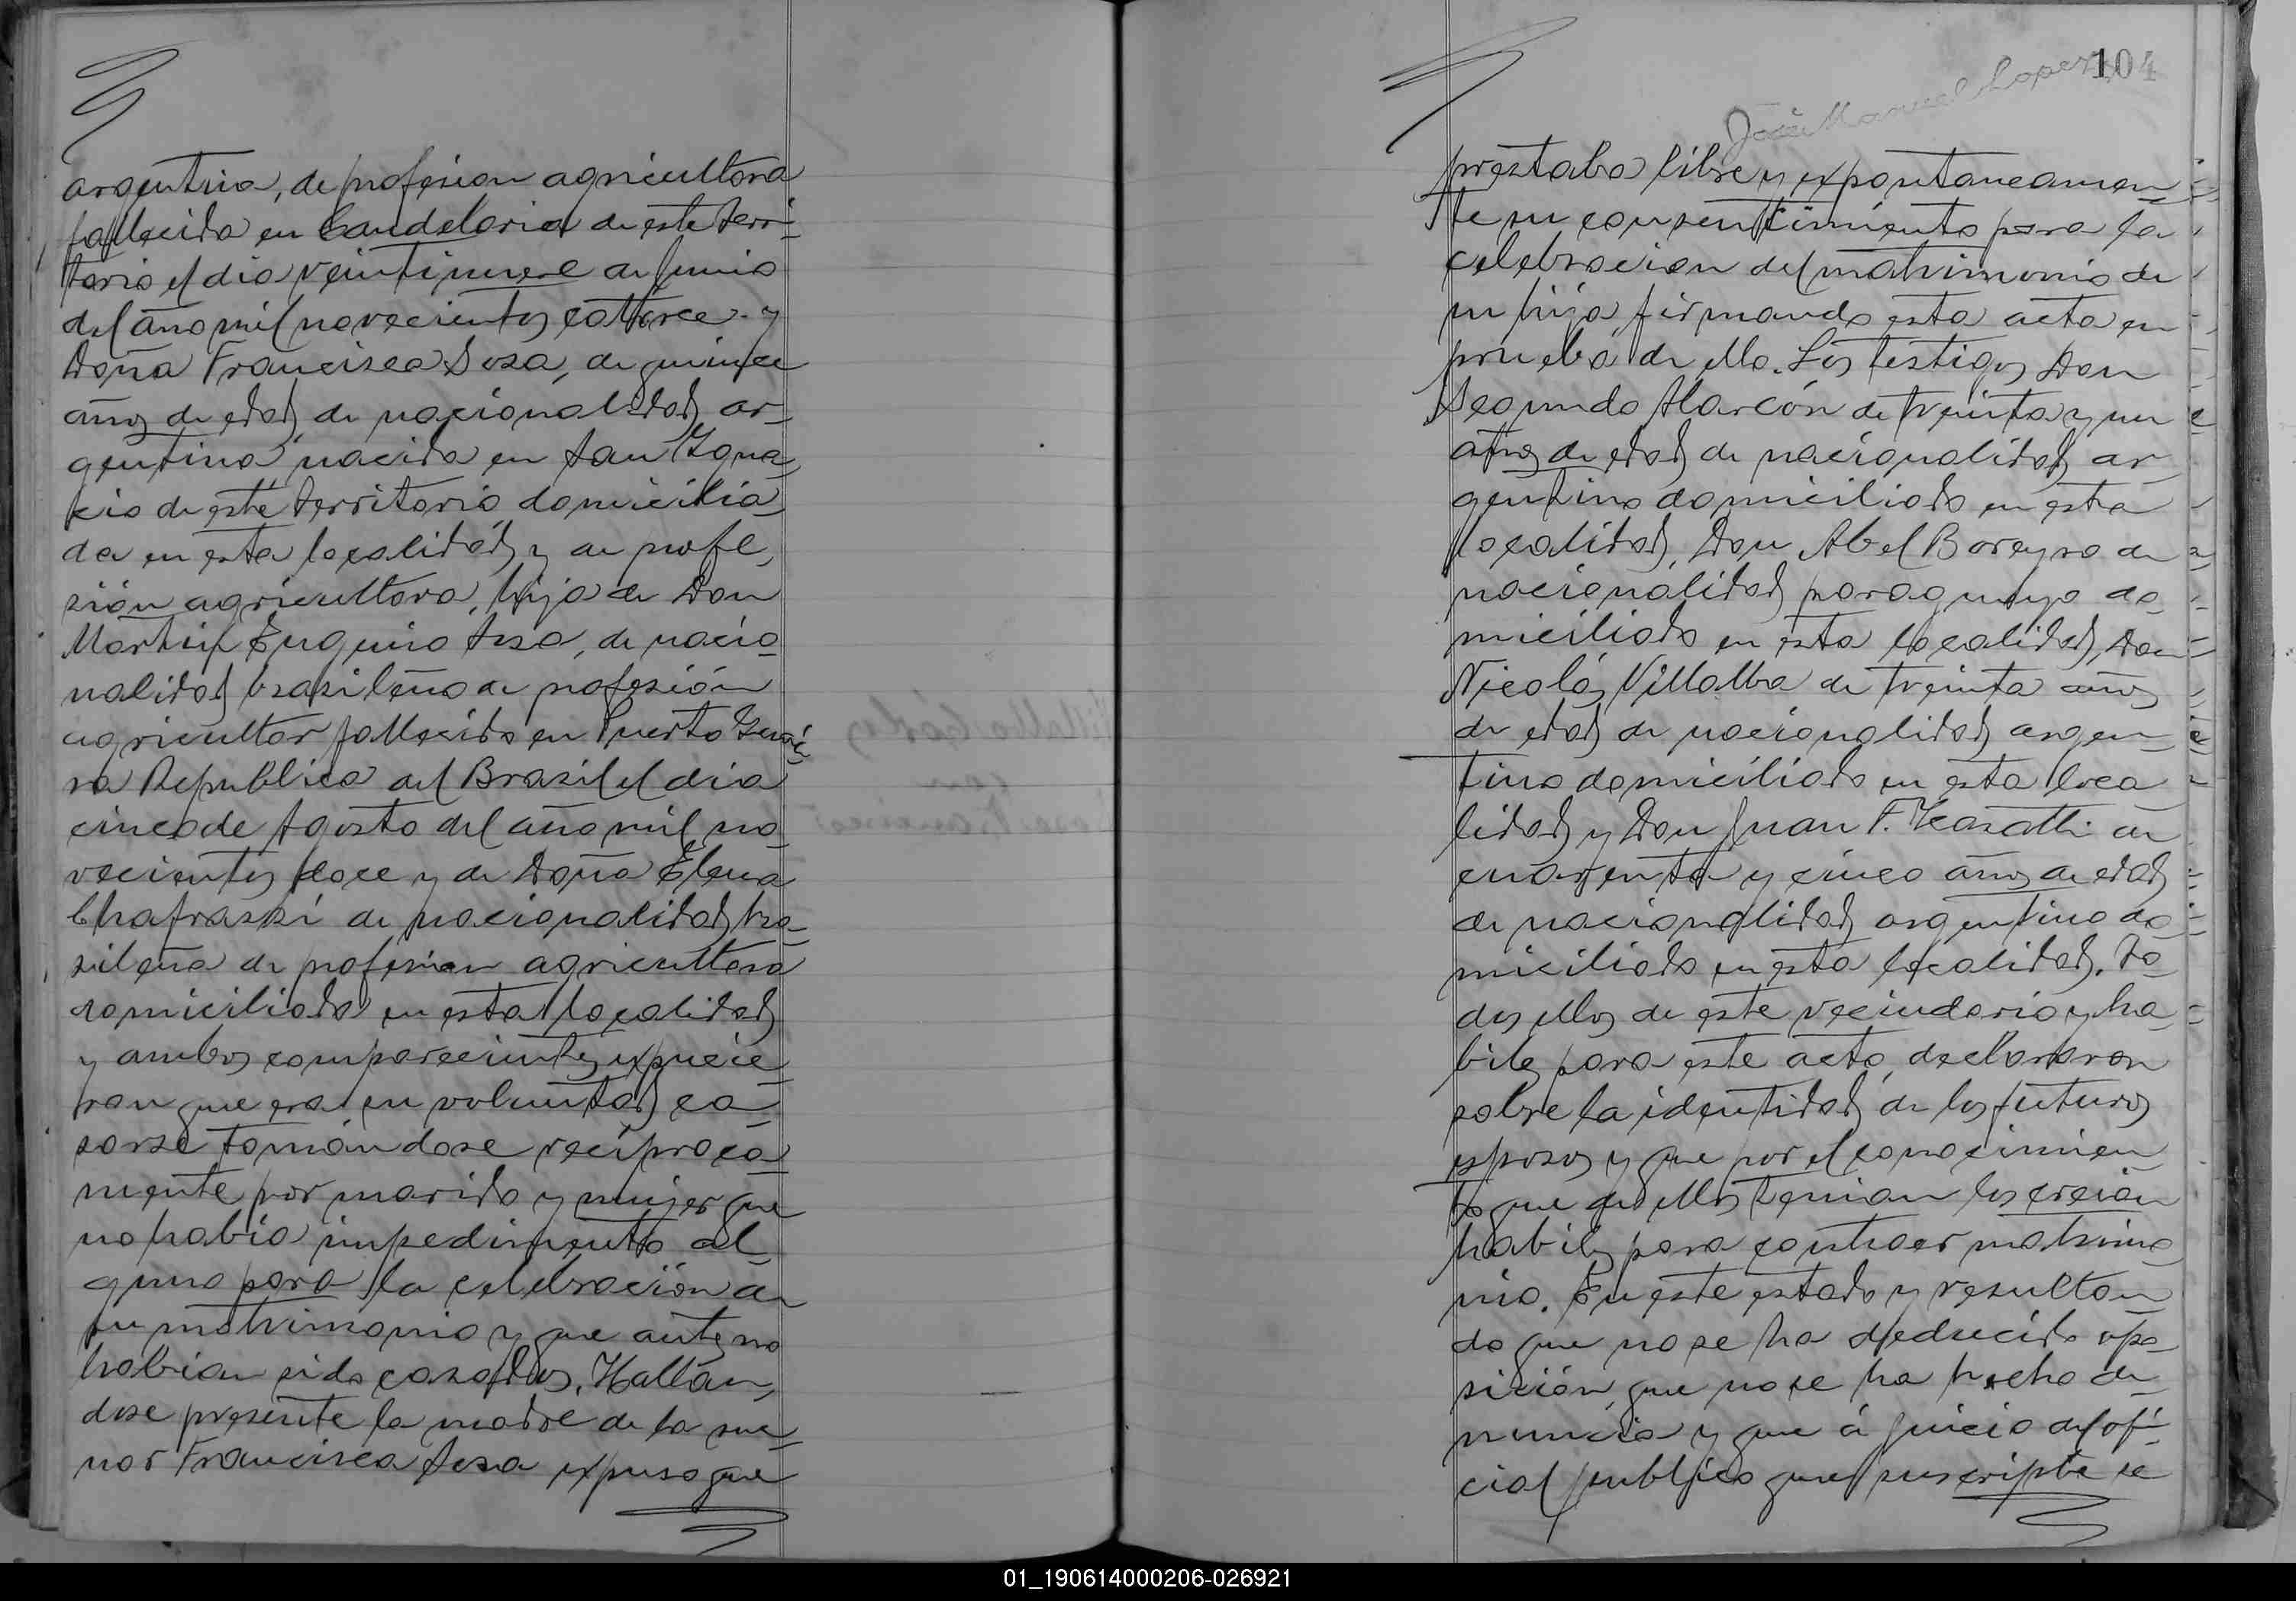 argentina, de profesion agricultora
fallecida en Candelaria de este terri-
torio el dia veintinueve de Junio
del año mil novecientos catorce y
Doña Francisca Sosa, de quince
años de edad de nacionalidad ar-
gentina nacida en San Igna-
cio de este territorio domicilia-
da en esta localidad y de profe-
sión agricultora, hija de Don
Martin Eugenio Sosa, de nacio-
nalidad brasileña de profesión
agricultor fallecido en Puerto
ra Republica del Brasil el dia
cinco de Agosto del año mil no-
vecientos doce y de Doña Elena
Chafraski de nacionalidad bra-
sileña de profesion agricultora
domiciliada en esta localidad
y ambos comparecientes expusie-
ron que era su voluntad ca-
sarse tomándose reciproca-
mente por marido y mujer que
no habia impedimento al-
guno para la celebración de
su matrimonio y que antes no
habian sido casados. Hallan-
dose presente la madre de la me-
nor Francisca Sosa expuso que
104
José Manuel Lopez
prestaba libre y expontaneamen-
te su consentimiento para la
celebracion del matrimonio de
su hija firmando esta acta en
prueba de ello. Los testigos Don
Segundo Alarcón de treinta y un
años de edad de nacionalidad ar-
gentino domiciliado en esta
localidad, Don Abel Boreyro de
nacionalidad paraguayo do-
miciliado en esta localidad, Don
Nicolás Villalba de treinta años
de edad de nacionalidad argen-
tino domiciliado en esta loca-
lidad y Don Juan F. de
cuarenta y cinco años de edad
de nacionalidad argentino do-
miciliado en esta localidad. To-
dos ellos de este vecindario y ha-
biles para este acto, declararon
sobre la identidad de los futuros
esposos y que por el conocimien-
to que de ellos tenian los creian
habiles para contraer matrimo-
nio. En este estado y resultan-
do que no se ha deducido opo-
sición, que no se ha hecho de-
nuncia y que á juicio del ofi-
cial publico que suscripte se
01_190614000206-026921